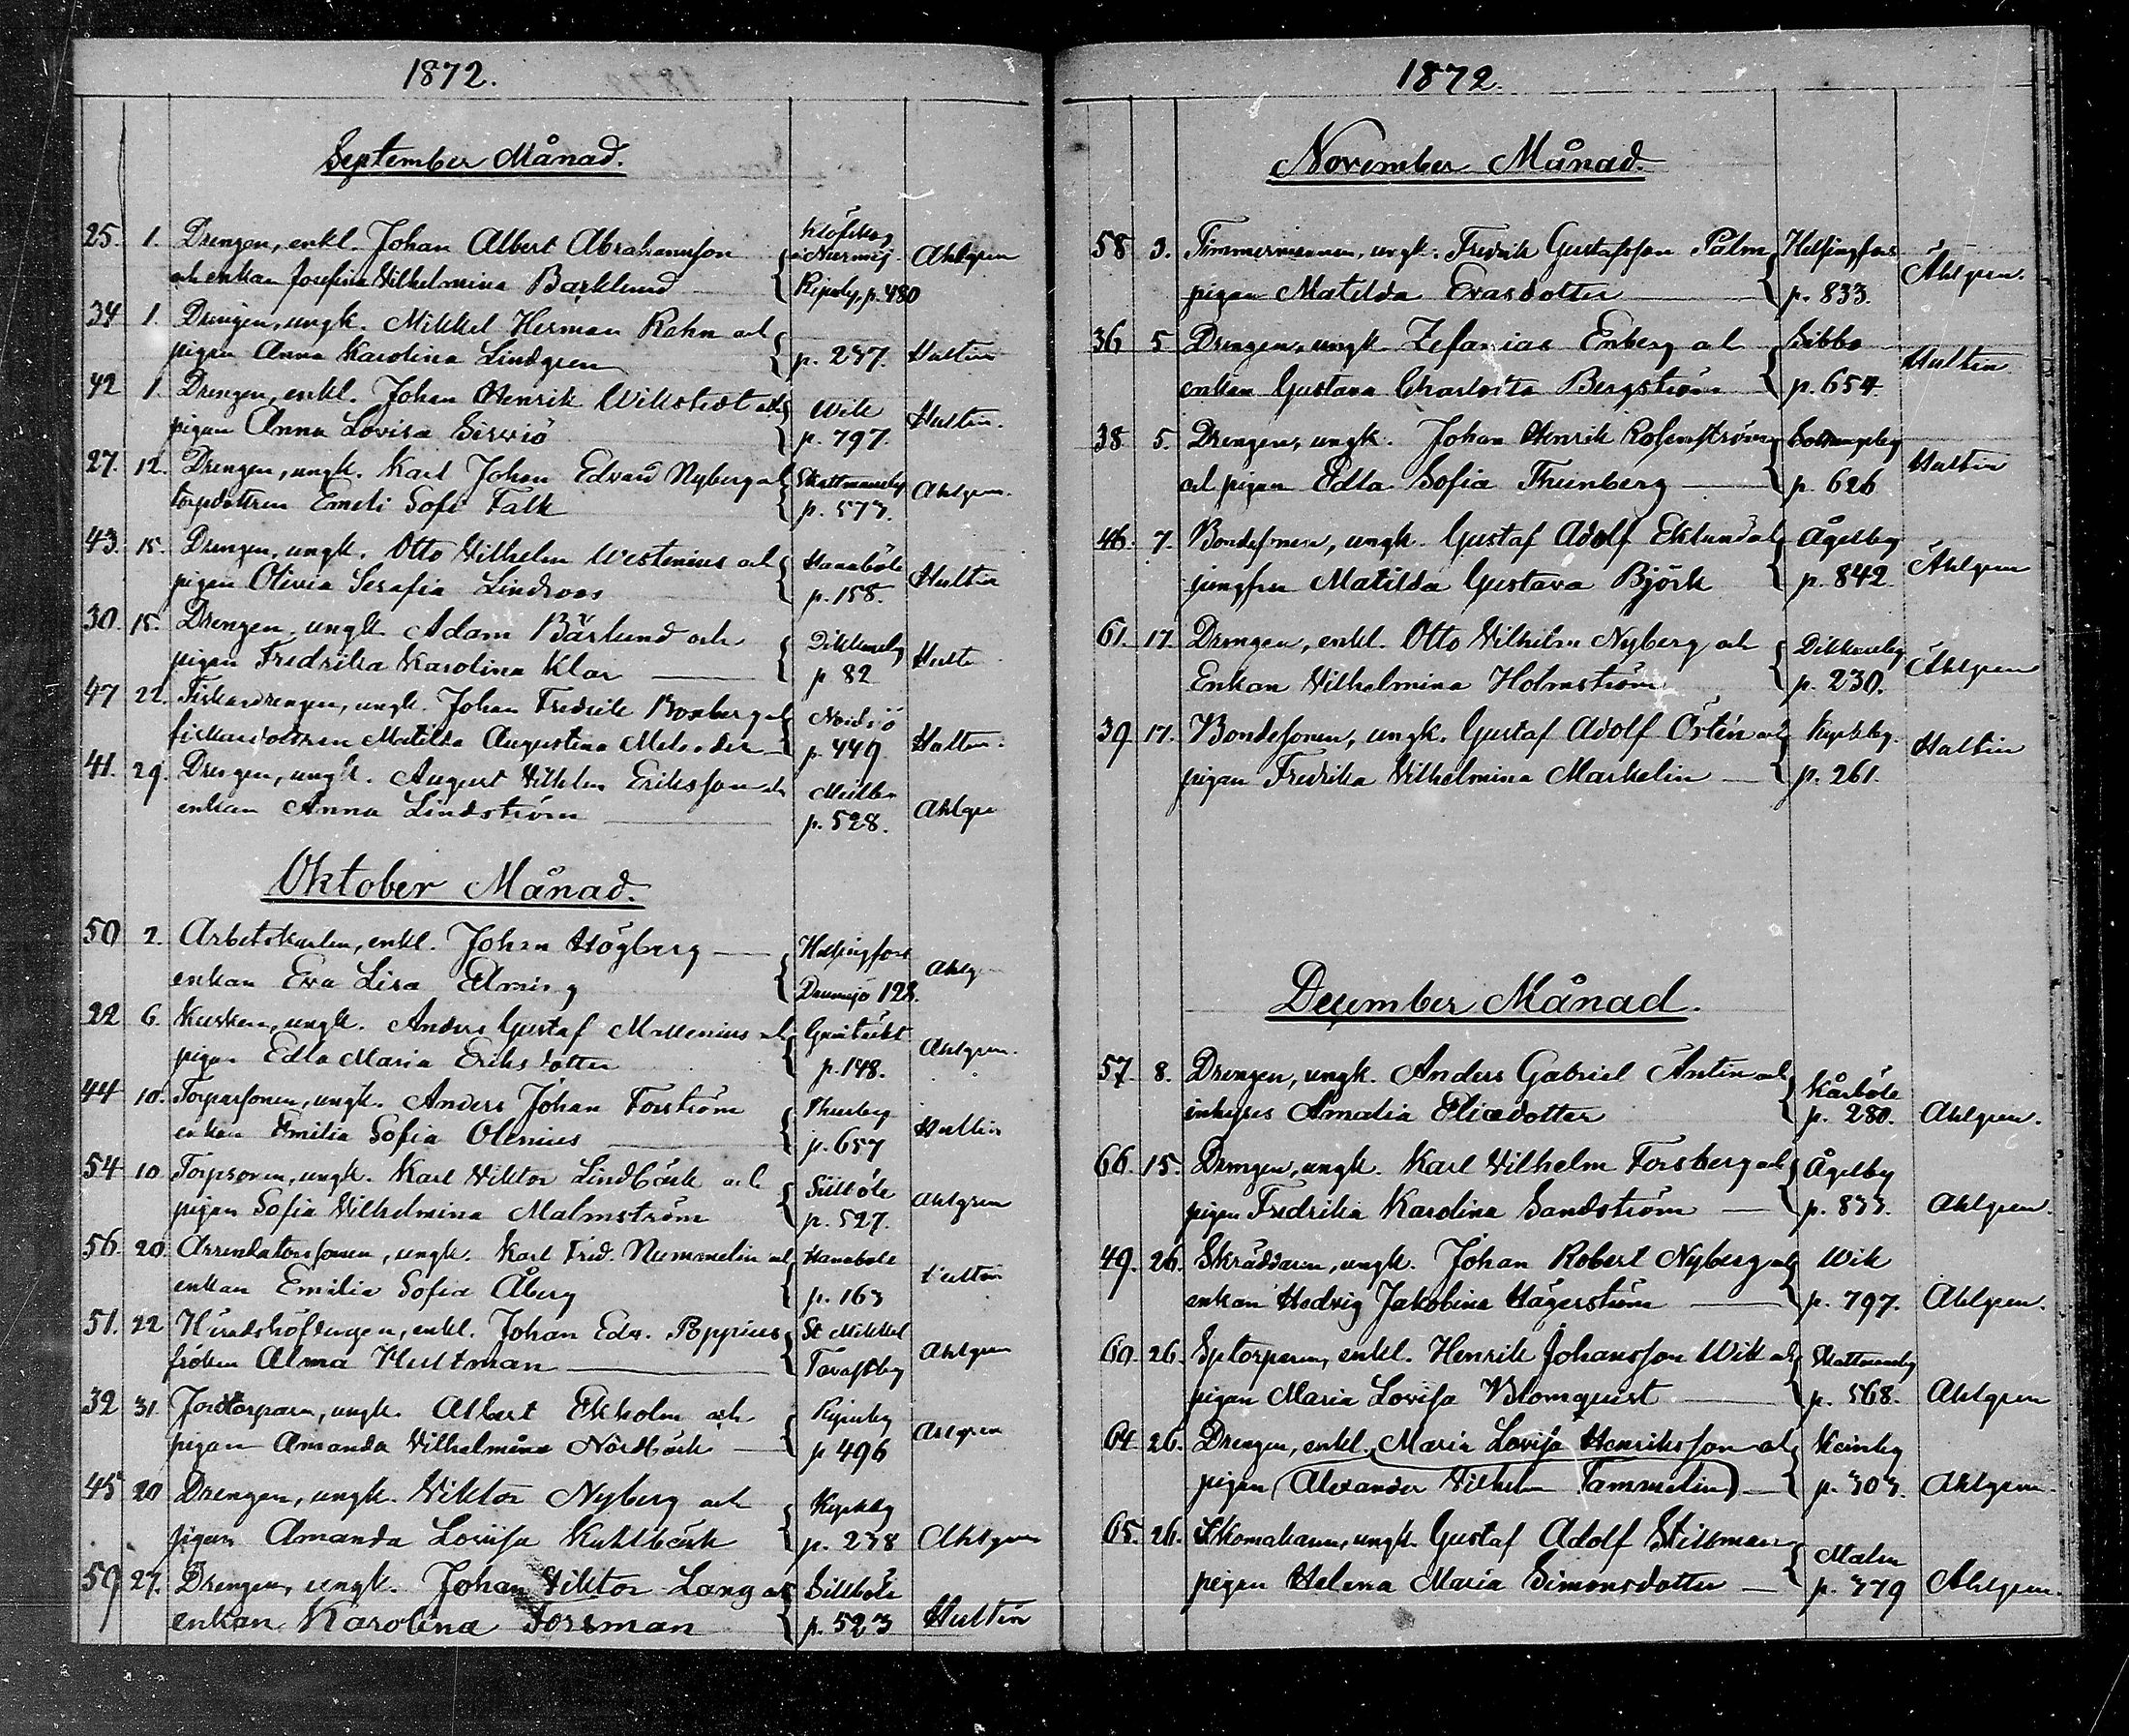 1872.
September Månad.
25. 1. Drengen, enkl. Johan Albert Abrahamsson
och enkan Josefina Vilhelmina Barklund p. 480 Ahlgren
34 1. Drengen, ungk. Mikkel Herman Rehn och
pigan Anna Karolina Lindgren p. 237. Hultin
42 1. Drengen, enkl. Johan Henrik Wikstedt och Wik
pigan Anna Lovisa p. 797. Hultin.
27. 12. Drengen, ungk. Karl Johan Edvard Nyberg och Skattmansby
torpdottren Emeli Sofi Falk p. 573. Ahlgren.
43. 15. Drengen, ungk. Otto Vilhelm Westenius och Hanaböle
pigan Olivia Serafia Lindroos p. 158. Hultin
30. 15. Drengen, ungk. Adam Bärlund och Dikkursby
pigan Fredrika Karolina Klar p 82
47 22. Fiskardrengen, ungk. Johan Fredrik Boxberg och Nordsjö
fiskardottren Matilda Augustina Melander p. 449. Hultin.
41. 29. Drengen, ungk. August Vilhelm Eriksson och
enkan Anna Lindström p. 528. Ahlgre
Oktober Månad.
50 2. Arbetskarlen, enkl. Johan Högberg Helsingfors
enkan Eva Lisa Elming 128.
22 6. Kusken, ungk. Anders Gustaf och
pigan Edla Maria Eriksdotter p. 148. Ahlgren.
44 10. Torparsonen, ungk. Anders Johan Forström
enkan Emilia Sofia Olenius p. 657 Hultin
54 10 Torpsonen, ungk. Karl Viktor Lindbäck och Sillböle
pigan Sofia Vilhelmina Malmström p. 527. Ahlgren
56. 20. Arrendatorssonen, ungk. Karl Fred. Nummelin och Hanaböle
enkan Emilia Sofia Åberg p. 163 Hultin
51. 22 Häradshöfdingen, enkl. Johan Edv. Poppius St Mikkel
fröken Alma Hultman Tavastby Ahlgren
32 31. Jordtorparn, ungk. Albert Ekholm och
pigan Amanda Vilhelmina Nordbäck p 496 Ahlgren
45 20 Drengen, ungk. Viktor Nyberg och Kyrkby
pigan Amanda Lovisa Kuhlbäck p. 238 Ahlgren
59 27. Drengen, ungk. Johan Viktor Lang och Sillböle
enkan Karolina Forsman p. 523 Hultin
1872.
November Månad.
58 3. Timmermannen, ungk. Fredrik Gustafsson Palm Helsingfors
pigan Matilda Evasdotter p. 833. Ahlgren.
36 5 Drengen, ungk. Zefanias Enberg och Sibbo
enkan Gustava Charlotta Bergström p. 654. Hultin
38 5. Drengen, ungk. Johan Henrik Rosenström
och pigan Edla Sofia Thunberg p. 626 Hultin
46. 7. Bondesonen, ungk. Gustaf Adolf Eklund och Ågelby
jungfru Matilda Gustava Björk p. 842. Ahlgren
61. 17. Drengen, enkl. Otto Vilhelm Nyberg och Dikkursby
Enkan Vilhelmina Holmström p. 230. Ahlgren
39 17. Bondesonen, ungk. Gustaf Adolf Östén och Kyrkby.
pigan Fredrika Vilhelmina Markelin p. 261. Hultin
December Månad.
57. 8. Drengen, ungk. Anders Gabriel Antin och Kårböle
inhyses Amalia Elisedotter p. 280. Ahlgren.
66. 15. Drengen, ungk. Karl Vilhelm Forsberg och Ågelby
pigan Fredrika Karolina Sandström p. 833. Ahlgren.
49. 26. Skräddaren, ungk. Johan Robert Nyberg och Wik
enkan Hedvig Jakobina Hägerström p. 797. Ahlgren.
60. 26. Sptorparen, enkl. Henrik Johansson Wik och Skattmansby
pigan Maria Lovisa Blomquist p. 568. Ahlgren
64 26. Drengen, enkl. Maria Lovisa Henriksson och
pigan (Alexander Vilhelm Tammelin) p. 303. Ahlgren.
65. 26. Skomakaren, ungk. Gustaf Adolf Stillman Malm
pigan Helena Maria Simonsdotter p. 379 Ahlgren.